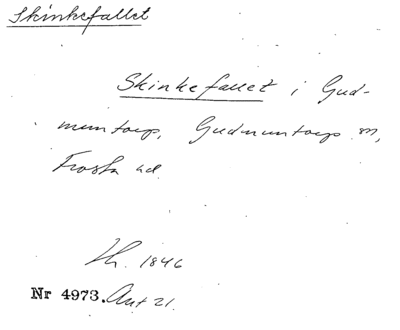 Skinkefallet
Skinkefallet i Gud-
muntorp, Gudmuntorps sn,
Frosta hd.
Lh. 1846
Nr 4973. Ant 21.